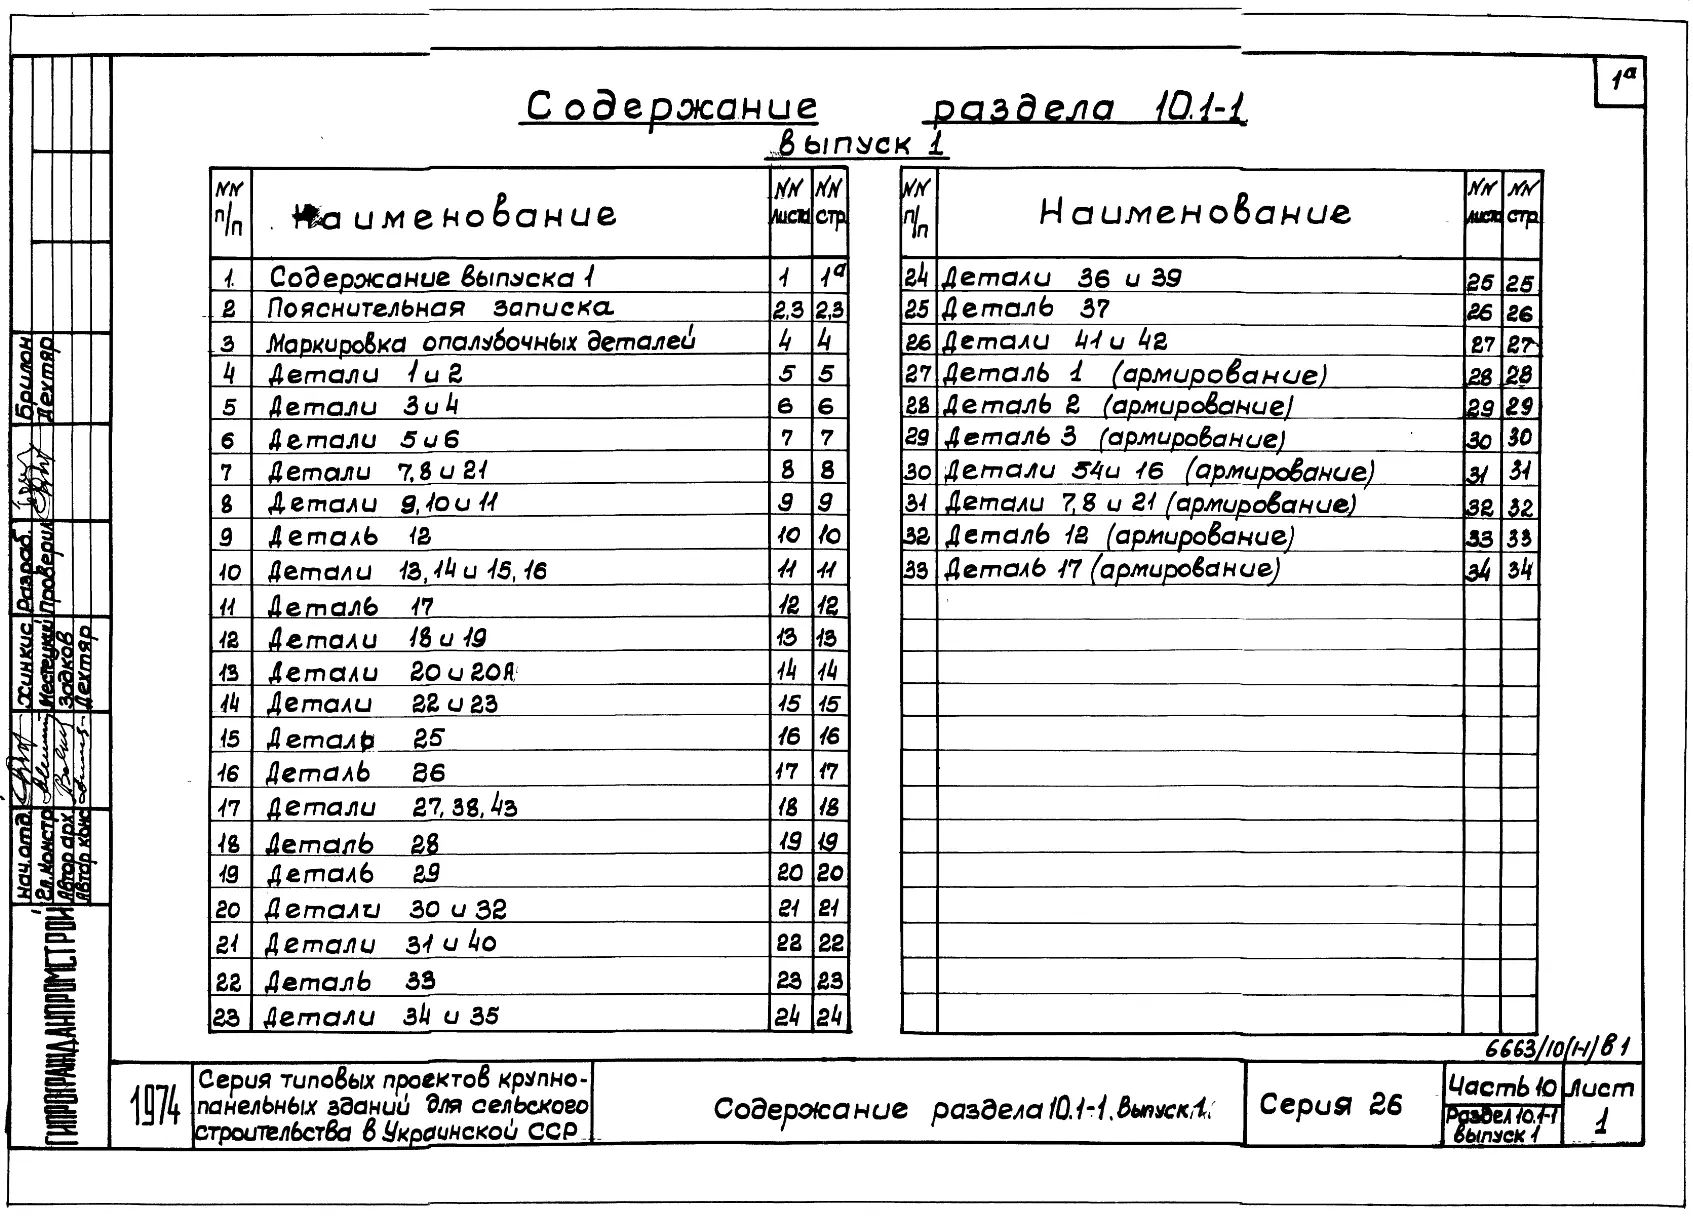 1а
Содержание раздела 10.1-1
выпуск 1
NN п/п Наименование NN листа NN стр.
1. Содержание выпуска 1 1 1а
2 Пояснительная записка 2,3 2,3
3 Маркировка опалубочных деталей 4 4
4 Детали 1 и 2 5 5
5 Детали 3 и 4 6 6
6 Детали 5 и 6 7 7
7 Детали 7, 8 и 21 8 8
8 Детали 9, 10 и 11 9 9
9 Деталь 12 10 10
10 Детали 13, 14 и 15, 16 11 11
11 Деталь 17 12 12
12 Детали 18 и 19 13 13
13 Детали 20 и 20А 14 14
14 Детали 22 и 23 15 15
15 Деталь 25 16 16
16 Деталь 26 17 17
17 Детали 27, 38, 43 18 18
18 Деталь 28 19 19
19 Деталь 29 20 20
20 Детали 30 и 32 21 21
21 Детали 31 и 40 22 22
22 Деталь 33 23 23
23 Детали 34 и 35 24 24
NN п/п Наименование NN листа NN стр.
24 Детали 36 и 39 25 25
25 Деталь 37 26 26
26 Детали 41 и 42 27 27
27 Деталь 1 (армирование) 28 28
28 Деталь 2 (армирование) 29 29
29 Деталь 3 (армирование) 30 30
30 Детали 54 и 16 (армирование) 31 31
31 Детали 7, 8 и 21 (армирование) 32 32
32 Деталь 12 (армирование) 33 33
33 Деталь 17 (армирование) 34 34
6663/10(1-1)В1
1974
Серия типовых проектов крупно-
панельных зданий для сельского
строительства в Украинской ССР
Содержание раздела 10.1-1. Выпуск 1.
Серия 26
Часть 10
Раздел 10.1-1
выпуск 1
Лист
1
ГИПРОГРАЖДАНПРОМСТРОЙ
Нач.отд. Хинкис Разраб. Брилон
Гл.констр. Местецкий Проверил Дехтяр
Автор арх. Задков
Автор конс. Дехтяр